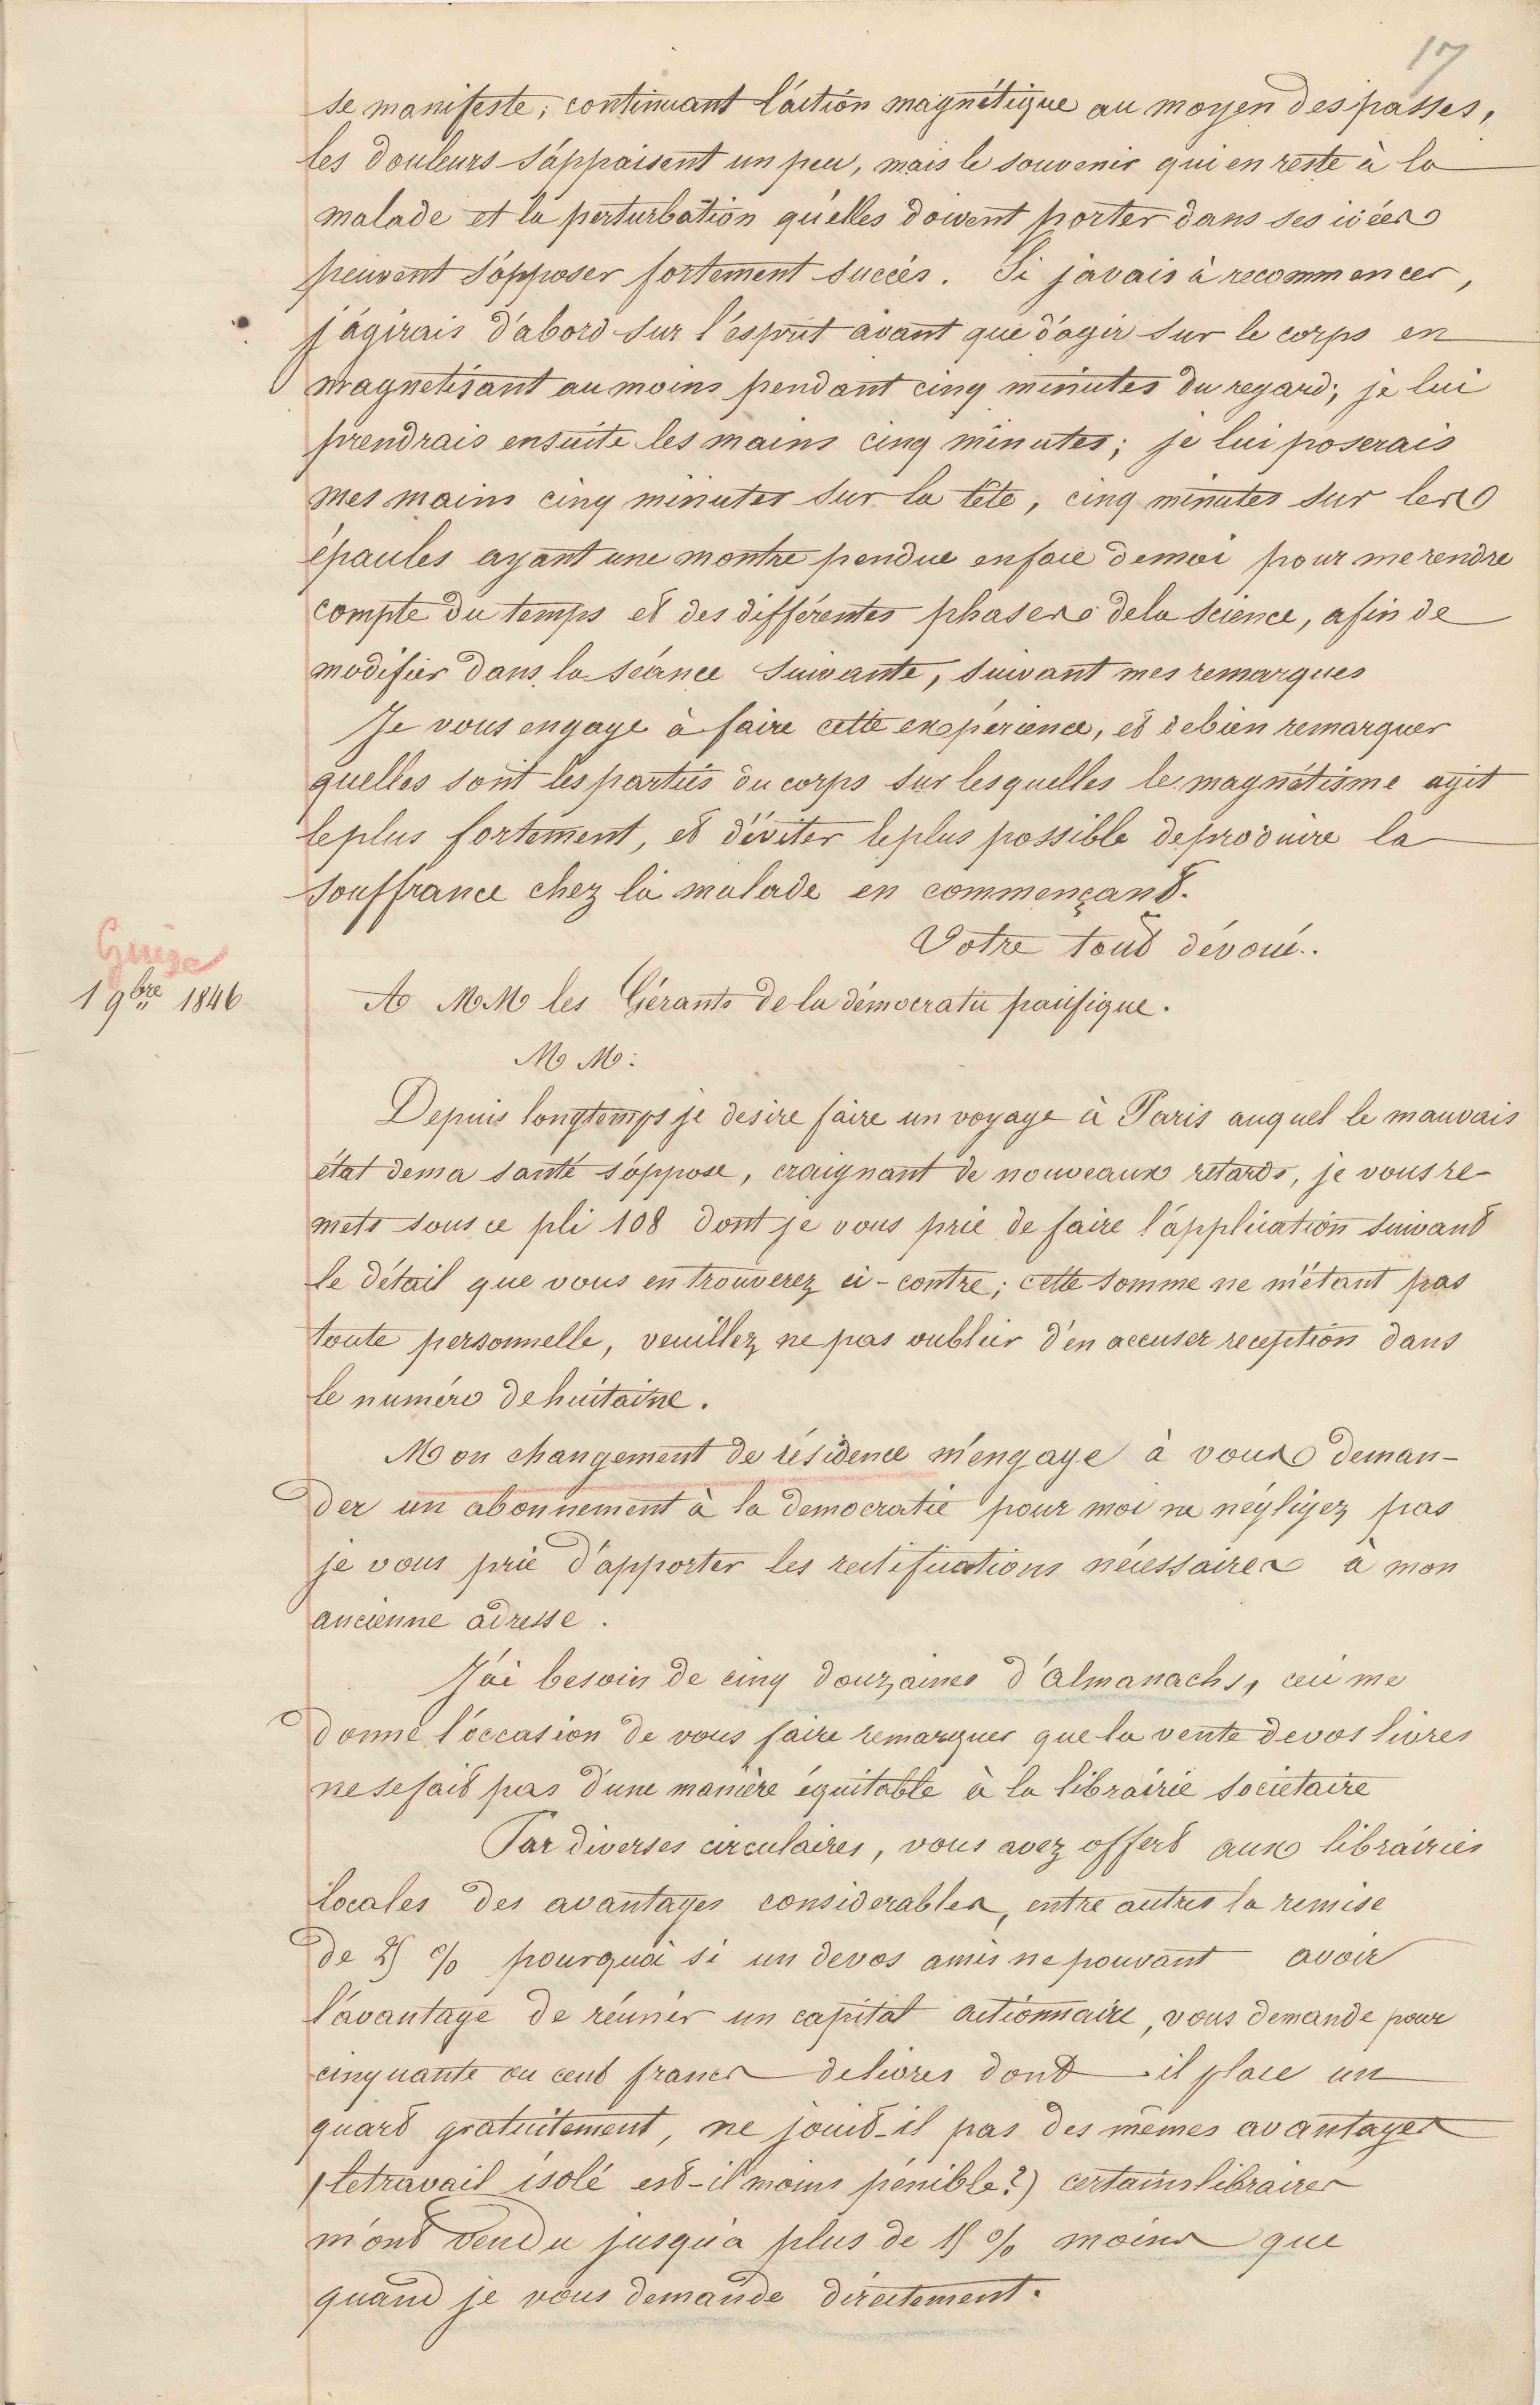 17
se manifeste; continuant l'action magnétique au moyen des passes,
les douleurs s'appaisent un peu, mais le souvenir qui en reste à la
malade et la perturbation qu'elles doivent porter dans ses idées
peuvent s'opposer fortement succès. Si j'avais à recommencer,
j'agirais d'abord sur l'esprit avant que d'agir sur le corps en
magnetisant au moins pendant cinq minutes du regard; je lui
prendrais ensuite les mains cinq minutes; je lui poserais
mes mains cinq minutes sur la tête, cinq minutes sur les
épaules ayant une montre pendue en face de moi pour me rendre
compte du temps et des différentes phases de la science, afin de
modifier dans la séance suivante, suivant mes remarques
Je vous engage à faire cette expérience, et de bien remarquer
quelles sont les parties du corps sur lesquelles le magnétisme agit
le plus fortement, et d'éviter le plus possible de produire la
souffrance chez la malade en commençant.
Votre tout dévoué.
Guise
1 9bre 1846
A MM les Gérants de la démocratie pacifique.
MM:
Depuis longtemps je desire faire un voyage à Paris auquel le mauvais
état de ma santé s'oppose, craignant de nouveaux retards, je vous re-
mets sous ce pli 108 dont je vous prie de faire l'application suivant
le détail que vous en trouverez ci-contre; cette somme ne m'étant pas
toute personnelle, veuillez ne pas oublier d'en accuser reception dans
le numéro de huitaine.
Mon changement de résidence m'engage à vous deman-
der un abonnement à la democratie pour moi ne négligez pas
je vous prie d'apporter les rectifications nécessaires à mon
ancienne adresse.
J'ai besoin de cinq douzaines d'Almanachs, ceci me
donne l'occasion de vous faire remarquer que la vente de vos livres
ne se fait pas d'une manière équitable à la librairie societaire
Par diverses circulaires, vous avez offert aux librairies
locales des avantages considerables, entre autres la remise
de 25 % pourquoi si un de vos amis ne pouvant avoir
l'avantage de réunir un capital actionnaire, vous demande pour
cinquante ou cent francs de livres dont il place un
quart gratuitement, ne jouit-il pas des mêmes avantages
(le travail isolé est-il moins pénible?) certains libraires
m'ont vendu jusqu'a plus de 15 % moins que
quand je vous demande directement.